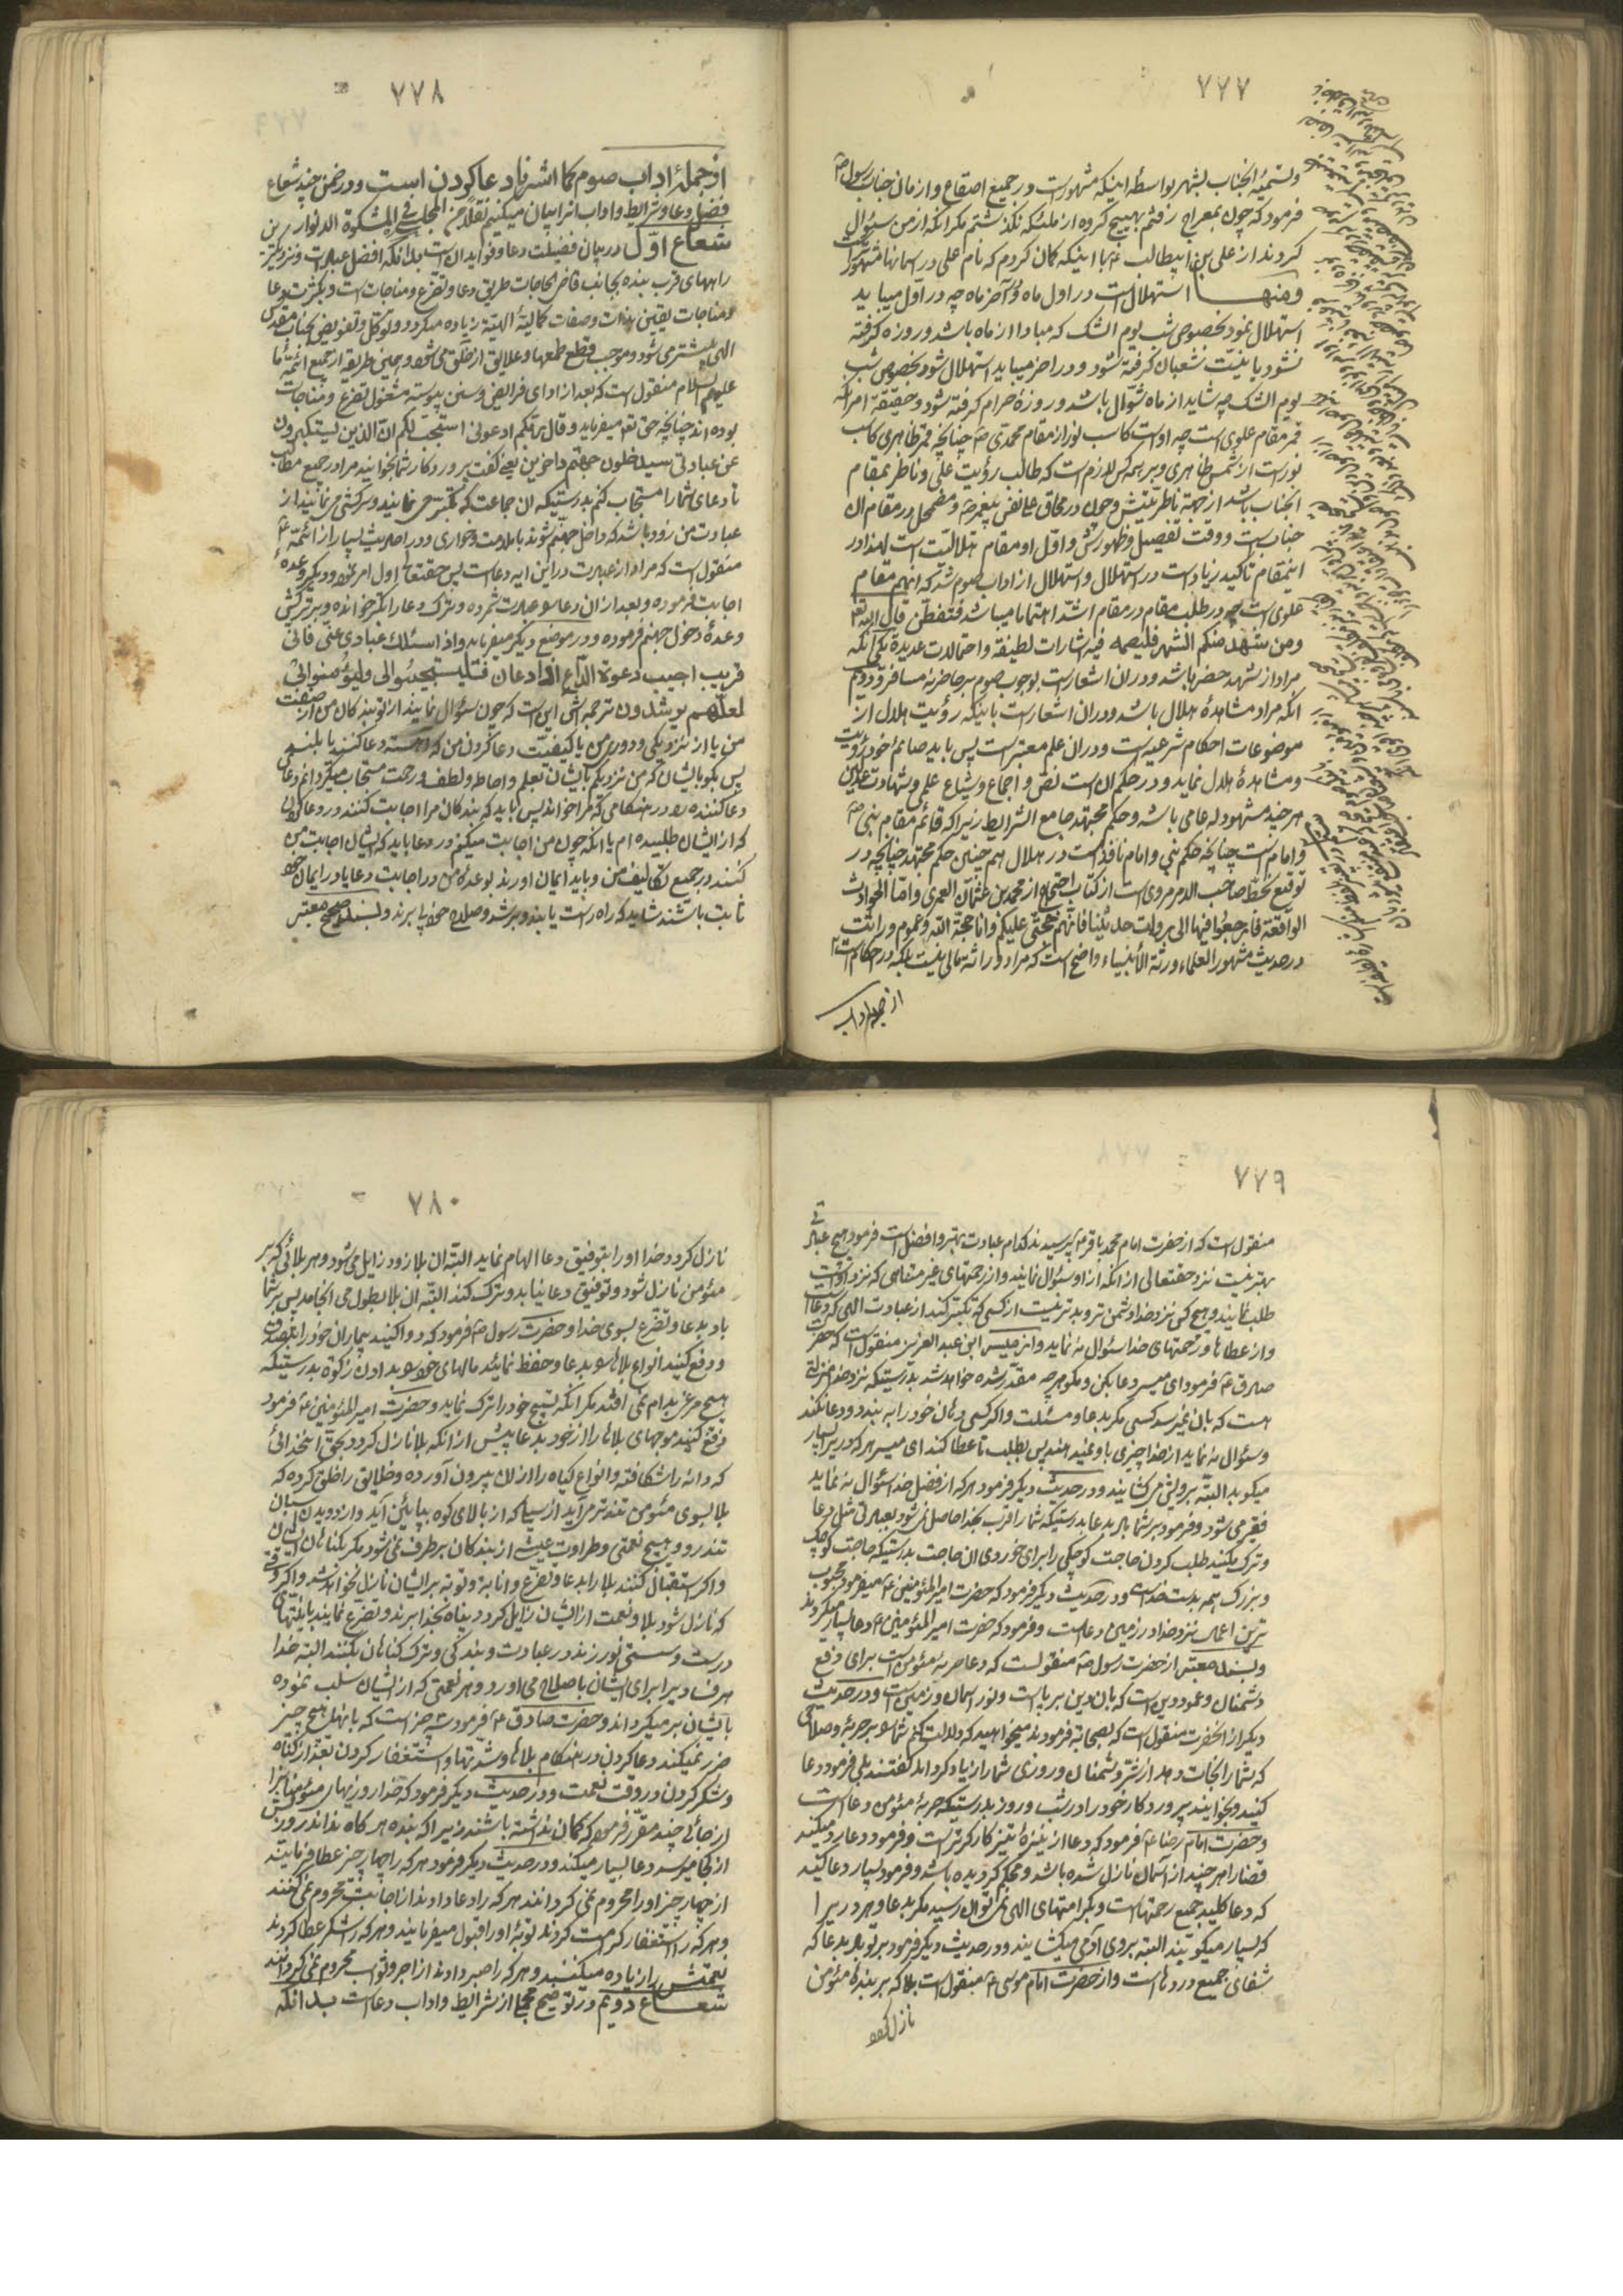 ٧٧٧
وتسمیهٔ انجناب بشهر بواسطهٔ اینکه مشهورست در جمیع اصقاع و از مان جناب رسول ص
فرمود که چون بمعراج رفتم بهیچ گروه از ملئکه نگذشتم مگر انکه از من سؤال
کردند از علی بن ابیطالب ع با اینکه گمان کردم که نام علی در اسمانها مشهورتر است
ومنها استهلال است در اول ماه و اخر ماه چه در اوّل میباید
استهلال نمود بخصوص شب یوم الشک که مبادا از ماه باشد و روزه گرفته
نشود یا بنیّت شعبان گرفته شود و در اخر میباید استهلال شود بخصوص شب
یوم الشک چه شاید از ماه شوّال باشد و روزهٔ حرام گرفته شود و حقیقة امر انکه
قمر مقام علوی است چه اوست کاسب نور از مقام محمدی ص چنانچه قمر ظاهری کاسب
نورست از شمس ظاهری و بر همه کس لازم است که طالب رؤیت علی و ناظر بمقام
انجناب باشد از جهة ناظریتش و چون در محاق علی نفس پیغمبر ص و مضمحل در مقام ان
جنابست و وقت تفصیل و ظهورش و اوّل او مقام هلالیّت است لهذا در
اینمقام تاکید زیاد است در استهلال و استهلال از اداب صوم شد که انهم مقام
علوی است چه در طلب مقام در مقام اشدّ اهتماما میباشد فتفطّن قال الله تع
ومن شهد منکم الشهر فلیصمه فیه اشارات لطیفة و احتمالات عدیدة یکی انکه
مراد از شهد حضر باشد و در ان اشعار است بوجوب صوم بر حاضر نه مسافر و دویم
انکه مراد مشاهدهٔ هلال باشد و در ان اشعار است باینکه رؤیت هلال از
موضوعات احکام شرعیه است و در ان علم معتبر است پس باید صائم خود رؤیت
ومشاهدهٔ هلال نماید و در حکم ان است نص و اجماع و شیاع علمی و شهادت عدلین
هر چند مشهود له عامی باشد و حکم مجتهد جامع الشرایط زیرا که قائم مقام نبی ص
و امام است چنانچه حکم نبی و امام نافذ است در هلال هم چنین حکم مجتهد چنانچه در
توقیع بخطّ صاحب الامر مروی است از کتاب احتجاج از محمد بن عثمان العمری و امّا الحوادث
الواقعة فارجعوا فیها الی رواة حدیثنا فانّهم حجّتی علیکم وانا حجّة الله و عموم وراثت
در حدیث مشهور العلماء ورثة الأنبیاء واضح است که مراد وراثة مالی نیست بلکه در احکام است
از جمله اداب
٧٧٨
از جملهٔ اداب صوم کما اشرنا دعا کردن است و در ضمن چند شعاع
فضل دعا و شرایط و اداب انرا بیان میکنیم نقلا عن المجلسی فی المشکوة الانوار
شعاع اوّل در بیان فضیلت دعا و فواید ان است بدانکه افضل عبادت و نزدیکترین
راههای قرب بنده بجانب قاضی الحاجات طریق دعا و تضرّع و مناجات است و بکثرت دعا
ومناجات یقین بذات و صفات کمالیّهٔ الهیّة زیاده میگردد و توکّل و تفویض بجناب مقدس
الهی بیشتر می شود و موجب قطع طمعها و علایق از خلق می شود و همین طریقه از جمیع ائمّهٔ ما
علیهم السلام منقول است که بعد از ادای فرایض و سنن پیوسته مشغول تضرّع و مناجات
بوده اند چنانچه حق تعم میفرماید وقال ربّکم ادعونی استجب لکم انّ الذین یستکبرون
عن عبادتی سیدخلون جهنّم داخرین یعنی گفت پروردگار شما بخوانید مرا در جمیع مطالب
تا دعای شما را مستجاب کنم بدرستیکه ان جماعت که تکبّر می نمایند و سرکشی می نمایند از
عبادت من زود باشد که داخل جهنّم شوند با ملامت و خواری و در احادیث بسیار از ائمّة ع
منقول است که مراد از عبادت در این ایه دعا است پس حقتعالی اول امر نموده و دیگر وعدهٔ
اجابت فرموده و بعد از ان دعا را عبادت شمرده و ترک دعا را تکبّر خوانده و بر ترکش
وعدهٔ دخول جهنّم فرموده و در موضع دیگر میفرماید واذا سئلک عبادی عنّی فانّی
قریب اجیب دعوة الدّاع اذا دعان فلیستجیبوا لی ولیؤمنوا بی
لعلّهم یرشدون ترجمه اش این است که چون سؤال نمایند از تو بندکان من از صفت
من یا از نزدیکی و دوری من یا کیفیّت دعا کردن من که اهسته دعا کنند یا بلند
پس بگو بایشان که من نزدیکم بایشان بعلم و احاطه و لطف و رحمت مستجاب میگردانم دعای
دعا کننده را در هنگامی که مرا خواند پس باید که بندکان مرا اجابت کنند در دعا کردن
که از ایشان طلبیده ام یا انکه چون من اجابت میکنم در دعا باید که ایشان اجابت من
کنند در جمیع تکالیف من و باید ایمان اورند بوعدهٔ من در اجابت دعا یا در ایمان خود
ثابت باشند شاید که راه راست یابند و برشد و صلاح خود پی برند و بسند صحیح معتبر
٧٧٩
منقول است که از حضرت امام محمد باقر ع پرسیدند کدام عبادت بهتر و افضل است فرمود هیچ عبادتی
بهتر نیست نزد حقتعالی از انکه از او سئوال نمایند و از رحمتهای غیر متناهی که نزد اوست
طلب نمایند و هیچ کس نزد خدا دشمن تر و بدتر نیست از کسی که تکبّر کند از عبادت الهی که دعاست
و از عطاها و رحمتهای خدا سئوال نه نماید و از میسر ابن عبد العزیز منقول است که حضرت
صادق ع فرمود ای میسر دعا بکن و مگو هر چه مقدّر شده خواهد شد بدرستیکه نزد خدا منزلتی
هست که بان نمیرسد کسی مگر بدعا و مسئلت و اگر کسی دهان خود را به بندد و دعا نکند
وسئوال نه نماید از خدا چیزی باو نمیدهند پس بطلب تا عطا کند ای میسر هر که در بسیار
میکوبد البتّه برویش می گشایند و در حدیث دیگر فرمود هر که از فضل خدا سئوال نه نماید
فقیر می شود و فرمود بر شما باد بدعا بدرستیکه شما را قرب بخدا حاصل نمی شود بعبادتی مثل دعا
و ترک مکنید طلب کردن حاجت کوچکی را برای خوردی ان حاجت بدرستیکه حاجت کوچک
و بزرگ همه بدست خداست و در حدیث دیگر فرمود که حضرت امیر المؤمنین ع میفرمود محبوب
ترین اعمال نزد خدا در زمین دعاست و فرمود که حضرت امیر المؤمنین ع دعا بسیار میکردند
وبسند معتبر از حضرت رسول ص منقولست که دعا حربهٔ مؤمن است برای دفع
دشمنان و عمود دین است که بان دین برپاست و نور اسمان و زمین است و در حدیث
دیگر از انحضرت منقول است که بصحابه فرمودند میخواهید که دلالت کنم شما را بر حربهٔ و صلاحی
که شما را نجات دهد از شرّ دشمنان و روزی شما را زیاد گرداند گفتند بلی فرمود دعا
کنید و بخوانید پروردگار خود را در شب و روز بدرستیکه حربهٔ مؤمن دعاست
و حضرت امام رضا ع فرمود که دعا از نیزهٔ تیز کارگرتر است و فرمود دعا رد میکند
قضا را هر چند از آسمان نازل شده باشد و محکم گردیده باشد و فرمود بسیار دعا کنید
که دعا کلید جمیع رحمتهاست و بکرامتهای الهی نمی توان رسید مگر بدعا و هر در را
که بسیار میکوبند البته بروی آدمی میگشایند و در حدیث دیگر فرمود بر تو باد بدعا که
شفای جمیع دردهاست و از حضرت امام موسی ع منقول است بلا که بر بندهٔ مؤمن
نازل گردد
٧٨٠
نازل گردد و خدا او را بتوفیق دعا الهام نماید البتّه ان بلا زود زایل می شود و هر بلائی که بر
مئومن نازل شود و توفیق دعا نیابد و ترک کند البتّه ان بلا بطول می انجامد پس بر شما
باد بدعا و تضرّع بسوی خدا و حضرت رسول ص فرمود که دوا کنید بیماران خود را بتصدّق
و دفع کنید انواع بلاها را بدعا و حفظ نمائید مالهای خود را بدادن زکوة بدرستیکه
هیچ مرغ بدام نمی افتد مگر انکه تسبیح خود را ترک نماید و حضرت امیر المؤمنین ع فرمود
دفع کنید موجهای بلاها را از خود بدعا پیش از انکه بلا نازل گردد بحقّ انخدائی
که دانه را شکافته و انواع گیاه را از ان بیرون آورده و خلایق را خلق کرده که
بلا بسوی مئومن تندتر می آید از سیل که از بالای کوه بپایئن آید و از دویدن اسبان
تندرو و هیچ نعمتی و طراوت عیش از بندکان برطرف نمی شود مگر بگناهان ایشان
و اگر استقبال کنند بلا را بدعا و تضرّع و انابه و توبه بر ایشان نازل نخواهد شد و اگر وقتی
که نازل شود بلا و نعمت از ایشان زایل گردد پناه بخدا برند و تضرّع نمایند بانیّتهای
درست و سستی نورزند در عبادت و بندگی و ترک گناهان بکنند البته خدا
هر فساد را برای ایشان باصلاح می اورد و هر نعمتی که از ایشان سلب نموده
بایشان بر میگرداند و حضرت صادق ع فرمود سه چیز است که بانها هیچ چیز
ضرر نمیکند دعا کردن در هنگام بلاها و شدّتها و استغفار کردن بعد از گناه
وشکر کردن در وقت نعمت و در حدیث دیگر فرمود که خدا روزیهای مئومنانرا
از جائی چند مقرّر فرموده که گمان نداشته باشند زیرا که بنده هر گاه نداند روزیش
از کجا میرسد دعا بسیار میکند و در حدیث دیگر فرمود هر که را چهار چیز عطا فرمایند
از چهار چیز او را محروم نمی گردانند هر که را دعا دادند از اجابت محروم نمی کنند
وهر که را استغفار کرامت کردند توبهٔ او را قبول میفرمایند و هر که را شکر عطا کردند
نعمتش را زیاده میکنند و هر که را صبر دادند از اجر و ثواب محروم نمی گردانند
شعاع دویم در توضیح مجملی از شرایط و اداب دعاست بدانکه